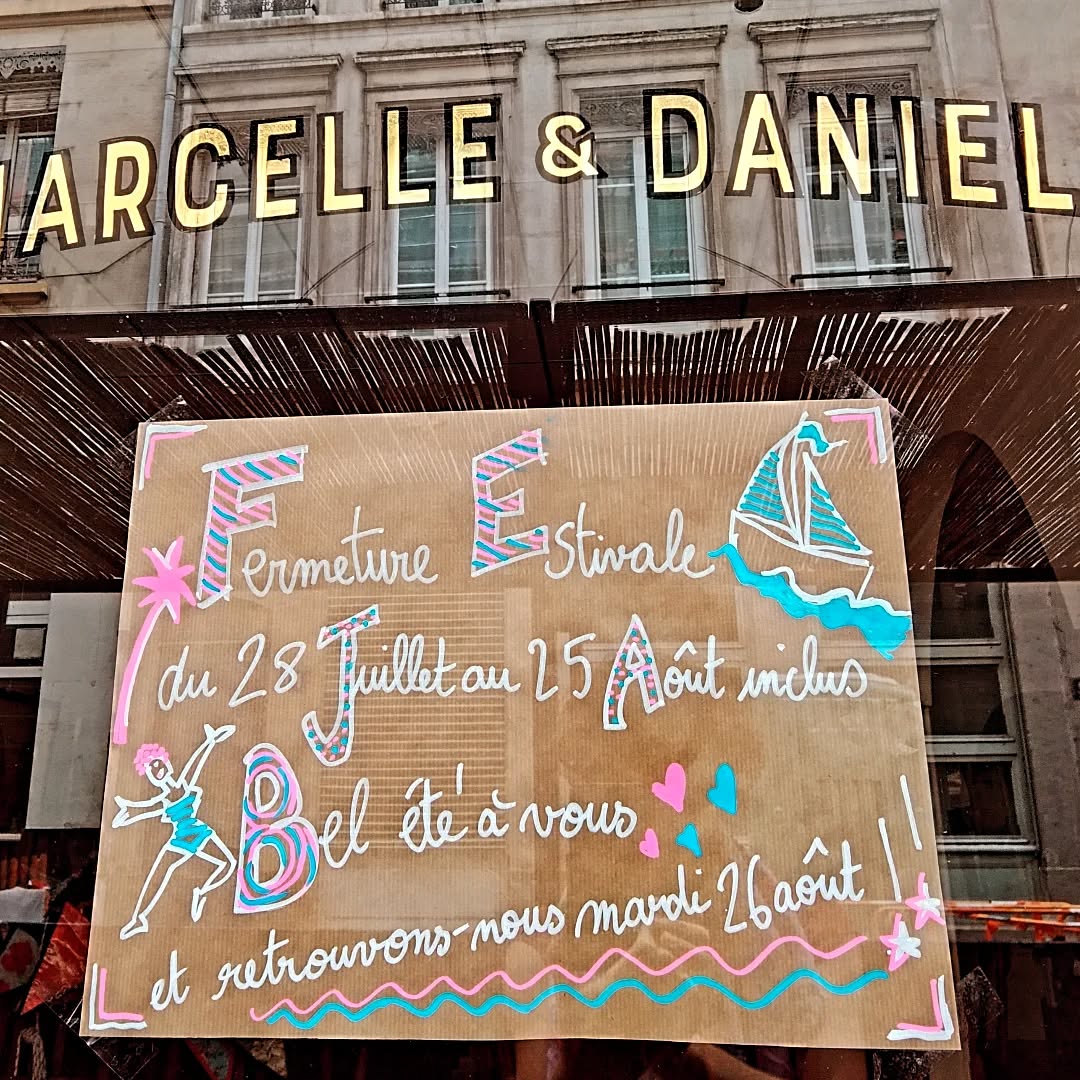 MARCELLE & DANIEL
Fermeture Estivale
du 28 Juillet au 25 Août inclus
Bel été à vous
et retrouvons-nous mardi 26 août !!